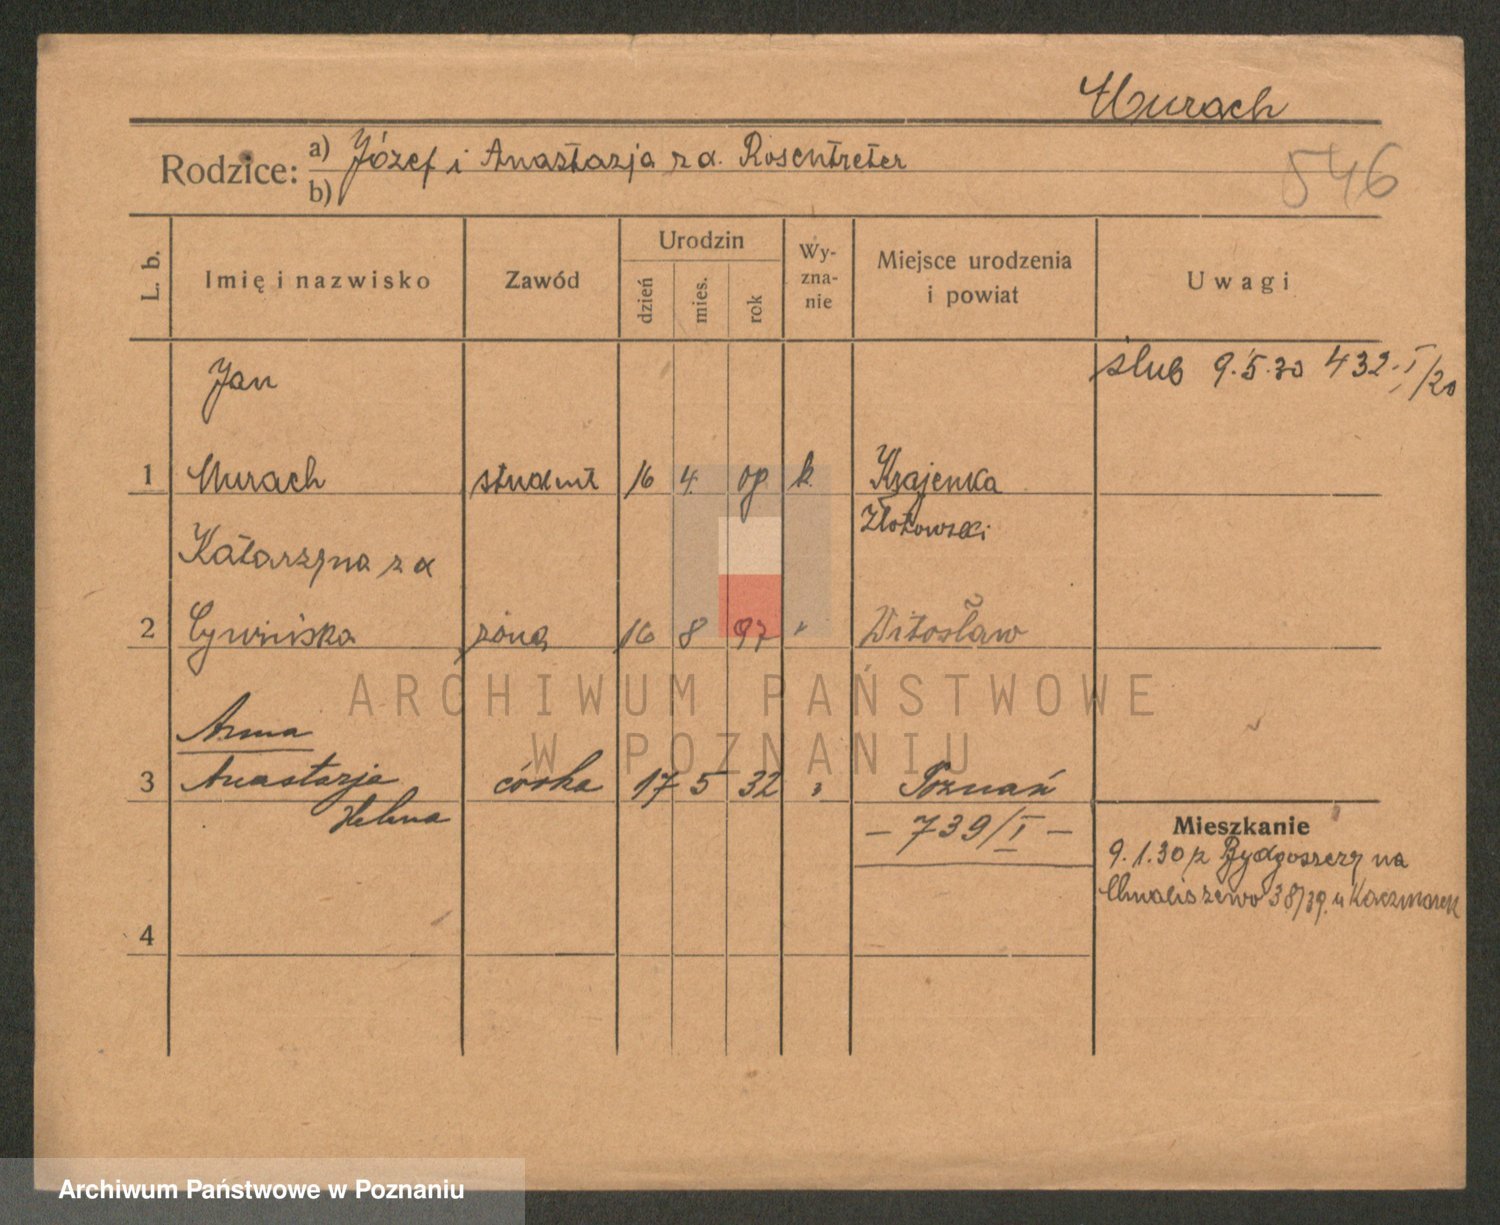 Murach
Rodzice: a) Józef i Anastazja z d. Rosentreter
b)
546
L. b.
Imię i nazwisko
Zawód
Urodzin
dzień
mies.
rok
Wy-
zna-
nie
Miejsce urodzenia
i powiat
Uwagi
Jan
ślub 9.5.30 432 I/20
1 Murach student 16 4. 09. k. Krajenka
Złotowski
Katarzyna z d
2 Cywińska żona 16 8 97 " Witosław
Anna
3 Anastazja córka 17 5 32 " Poznań
Helena
– 739/I –
Mieszkanie
9.1.30 z Bydgoszczy na
Chwaliszewo 38/39. u Kaczmarek
4
ARCHIWUM PAŃSTWOWE
W POZNANIU
Archiwum Państwowe w Poznaniu